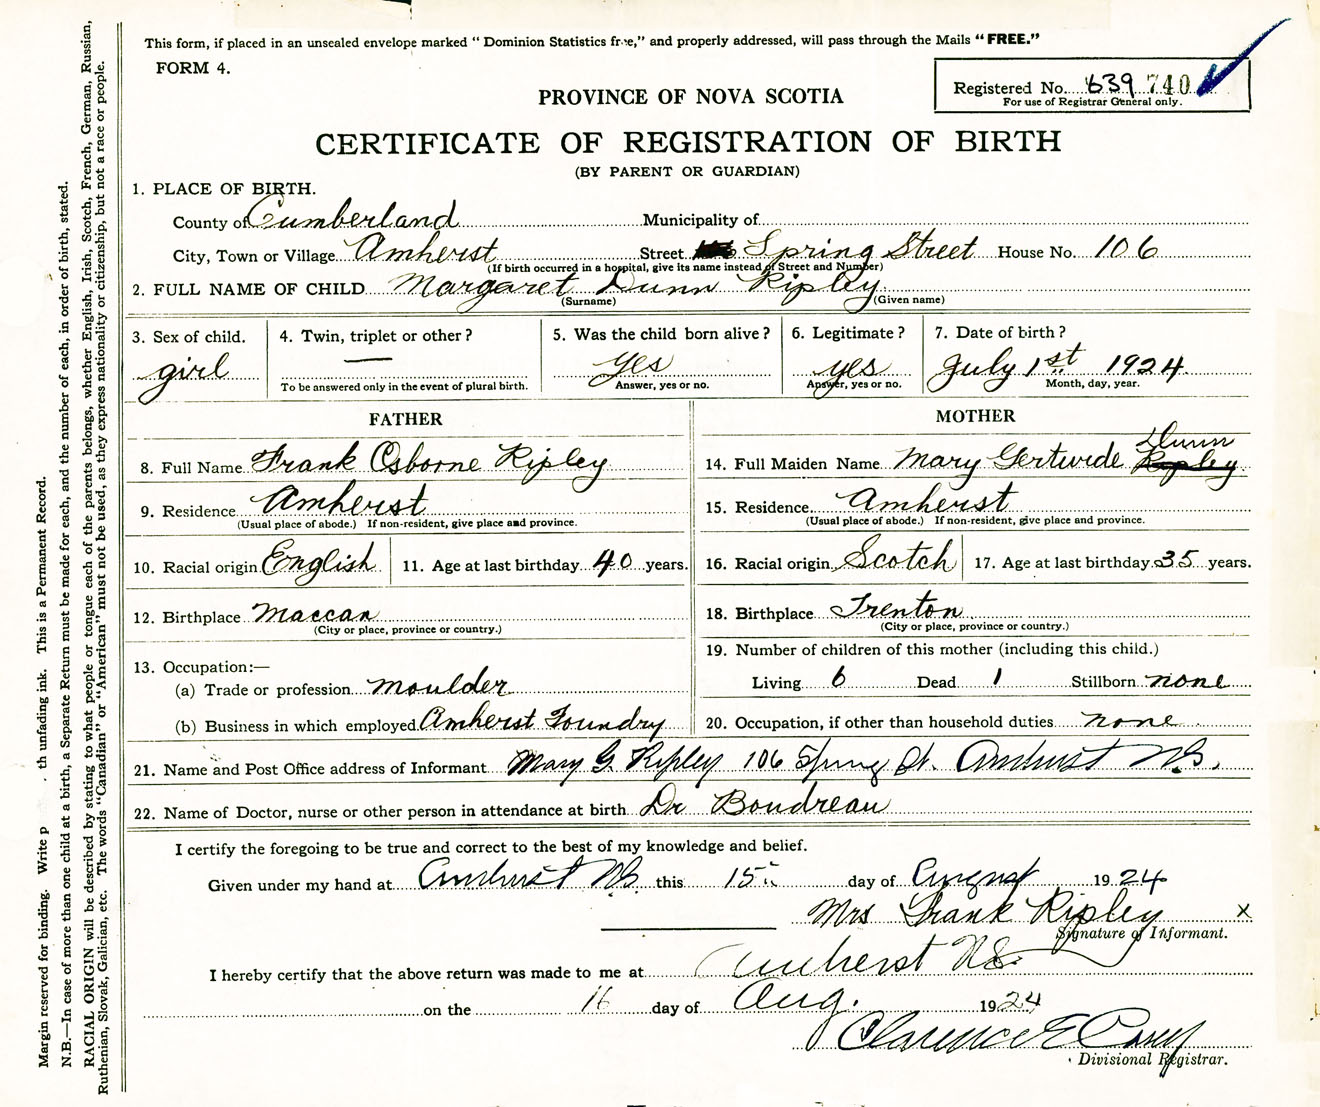 This form, if placed in an unsealed envelope marked “ Dominion Statistics free,” and properly addressed, will pass through the Mails “ FREE.”
FORM 4.
Registered No. 639 740
For use of Registrar General only.
PROVINCE OF NOVA SCOTIA
CERTIFICATE OF REGISTRATION OF BIRTH
(BY PARENT OR GUARDIAN)
1. PLACE OF BIRTH.
County of Cumberland Municipality of
City, Town or Village Amherst Street Spring Street House No. 106
(If birth occurred in a hospital, give its name instead of Street and Number)
2. FULL NAME OF CHILD Margaret Dunn Ripley
(Surname) (Given name)
3. Sex of child. 4. Twin, triplet or other ? 5. Was the child born alive ? 6. Legitimate ? 7. Date of birth ?
girl — yes yes July 1st 1924
To be answered only in the event of plural birth. Answer, yes or no. Answer, yes or no. Month, day, year.
FATHER MOTHER
8. Full Name Frank Osborne Ripley 14. Full Maiden Name Mary Gertrude Ripley Dunn
9. Residence Amherst 15. Residence Amherst
(Usual place of abode.) If non-resident, give place and province. (Usual place of abode.) If non-resident, give place and province.
10. Racial origin English 11. Age at last birthday 40 years. 16. Racial origin Scotch 17. Age at last birthday 35 years.
12. Birthplace Maccan 18. Birthplace Trenton
(City or place, province or country.) (City or place, province or country.)
13. Occupation:— 19. Number of children of this mother (including this child.)
(a) Trade or profession moulder Living 6 Dead 1 Stillborn none
(b) Business in which employed Amherst Foundry 20. Occupation, if other than household duties none
21. Name and Post Office address of Informant Mary G. Ripley 106 Spring St. Amherst N.S.
22. Name of Doctor, nurse or other person in attendance at birth Dr Boudreau
I certify the foregoing to be true and correct to the best of my knowledge and belief.
Given under my hand at Amherst N.S. this 15 day of August 1924
Mrs Frank Ripley x
Signature of Informant.
I hereby certify that the above return was made to me at Amherst N.S.
on the 16 day of Aug. 1924
Clarence E Casey
Divisional Registrar.
Margin reserved for binding. Write p th unfading ink. This is a Permanent Record.
N.B.—In case of more than one child at a birth, a Separate Return must be made for each, and the number of each, in order of birth, stated.
RACIAL ORIGIN will be described by stating to what people or tongue each of the parents belongs, whether English, Irish, Scotch, French, German, Russian,
Ruthenian, Slovak, Galician, etc. The words “Canadian” or “American” must not be used, as they express nationality or citizenship, but not a race or people.